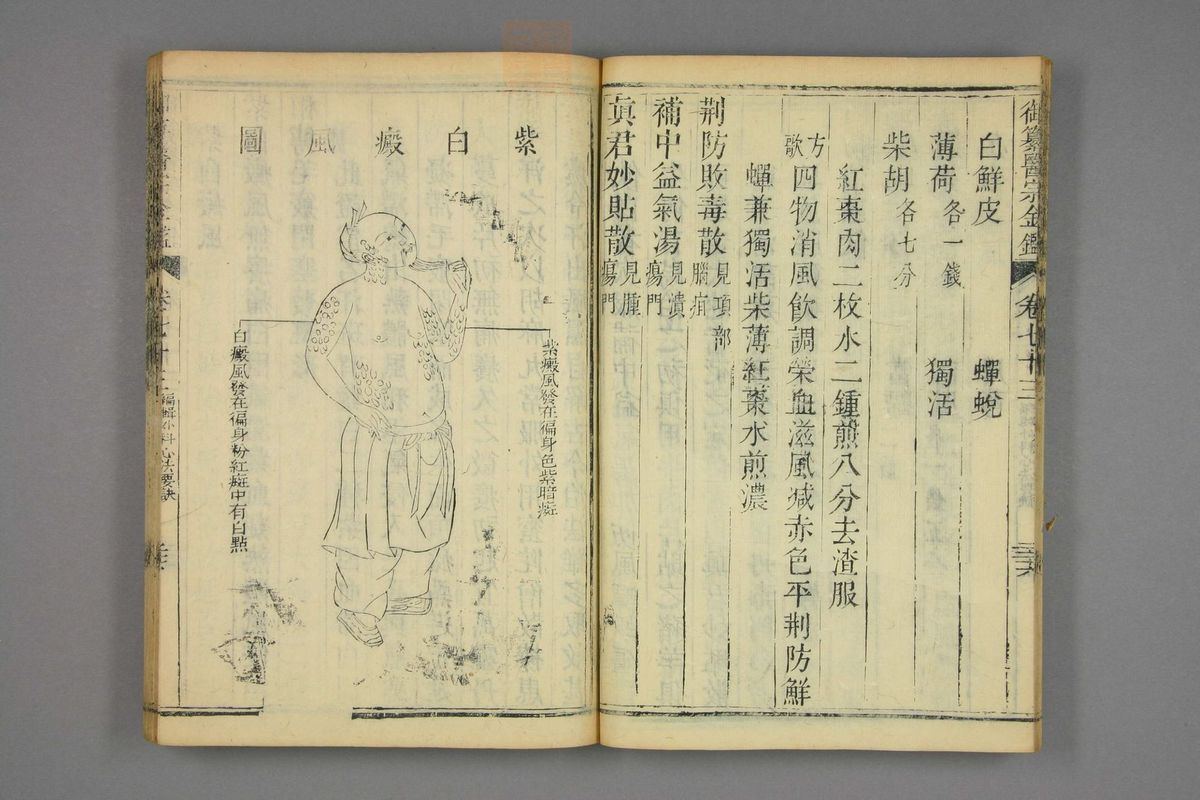 御纂醫宗金鑑 卷七十三
白鮮皮 蟬蛻
薄荷各一錢 獨活
柴胡各七分
紅棗肉二枚水二鍾煎八分去渣服
方歌 四物消風飲調榮血滋風減赤色平荆防鮮
蟬兼獨活柴薄紅棗水煎濃
荆防敗毒散見項部腦疽
補中益氣湯見潰瘍門
眞君妙貼散見腫瘍門
紫白癜風圖
紫癜風發在徧身色紫暗癍
白癜風發在徧身粉紅癍中有白點
編輯外科心法要訣